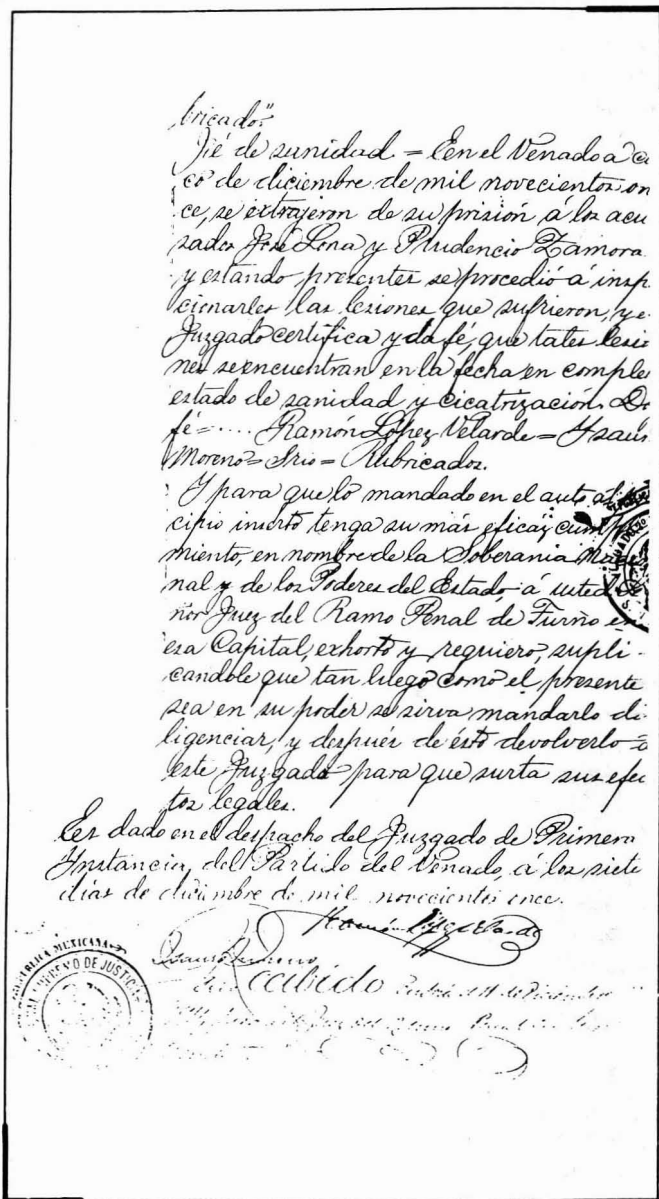 bricado"
Fé de sanidad = En el Venado a ci
co de diciembre de mil novecientos on
ce, se extrajeron de su prisión á los acu
sados José Lona y Prudencio Zamora
y estando presentes se procedió á insp
cionarles las lesiones que sufrieron, y e
Juzgado certifica y da fé, que tales lesio
nes se encuentran en la fecha en comple
estado de sanidad y cicatrización. Do
fé=.... Ramón López Velarde = Ysau
Moreno = Srio = Rubricados.
Y para que lo mandado en el auto ál
cipio inserto tenga su más eficáz cum
miento, en nombre de la Soberania
nal y de los Poderes del Estado, á usted
ñor Juez del Ramo Penal de Turno e
esa Capital, exhorto y requiero, supli-
candole que tan luego como el presente
sea en su poder se sirva mandarlo di
ligenciar, y después de ésto devolverlo a
este Juzgado para que surta sus efec
tos legales.
Es dado en el despacho del Juzgado de Primera
Instancia del Partido del Venado, á los siete
días de diciembre de mil novecientos once.
Ramón López Velarde
Recibido
REPUBLICA MEXICANA
SUPREMO DE JUSTICIA